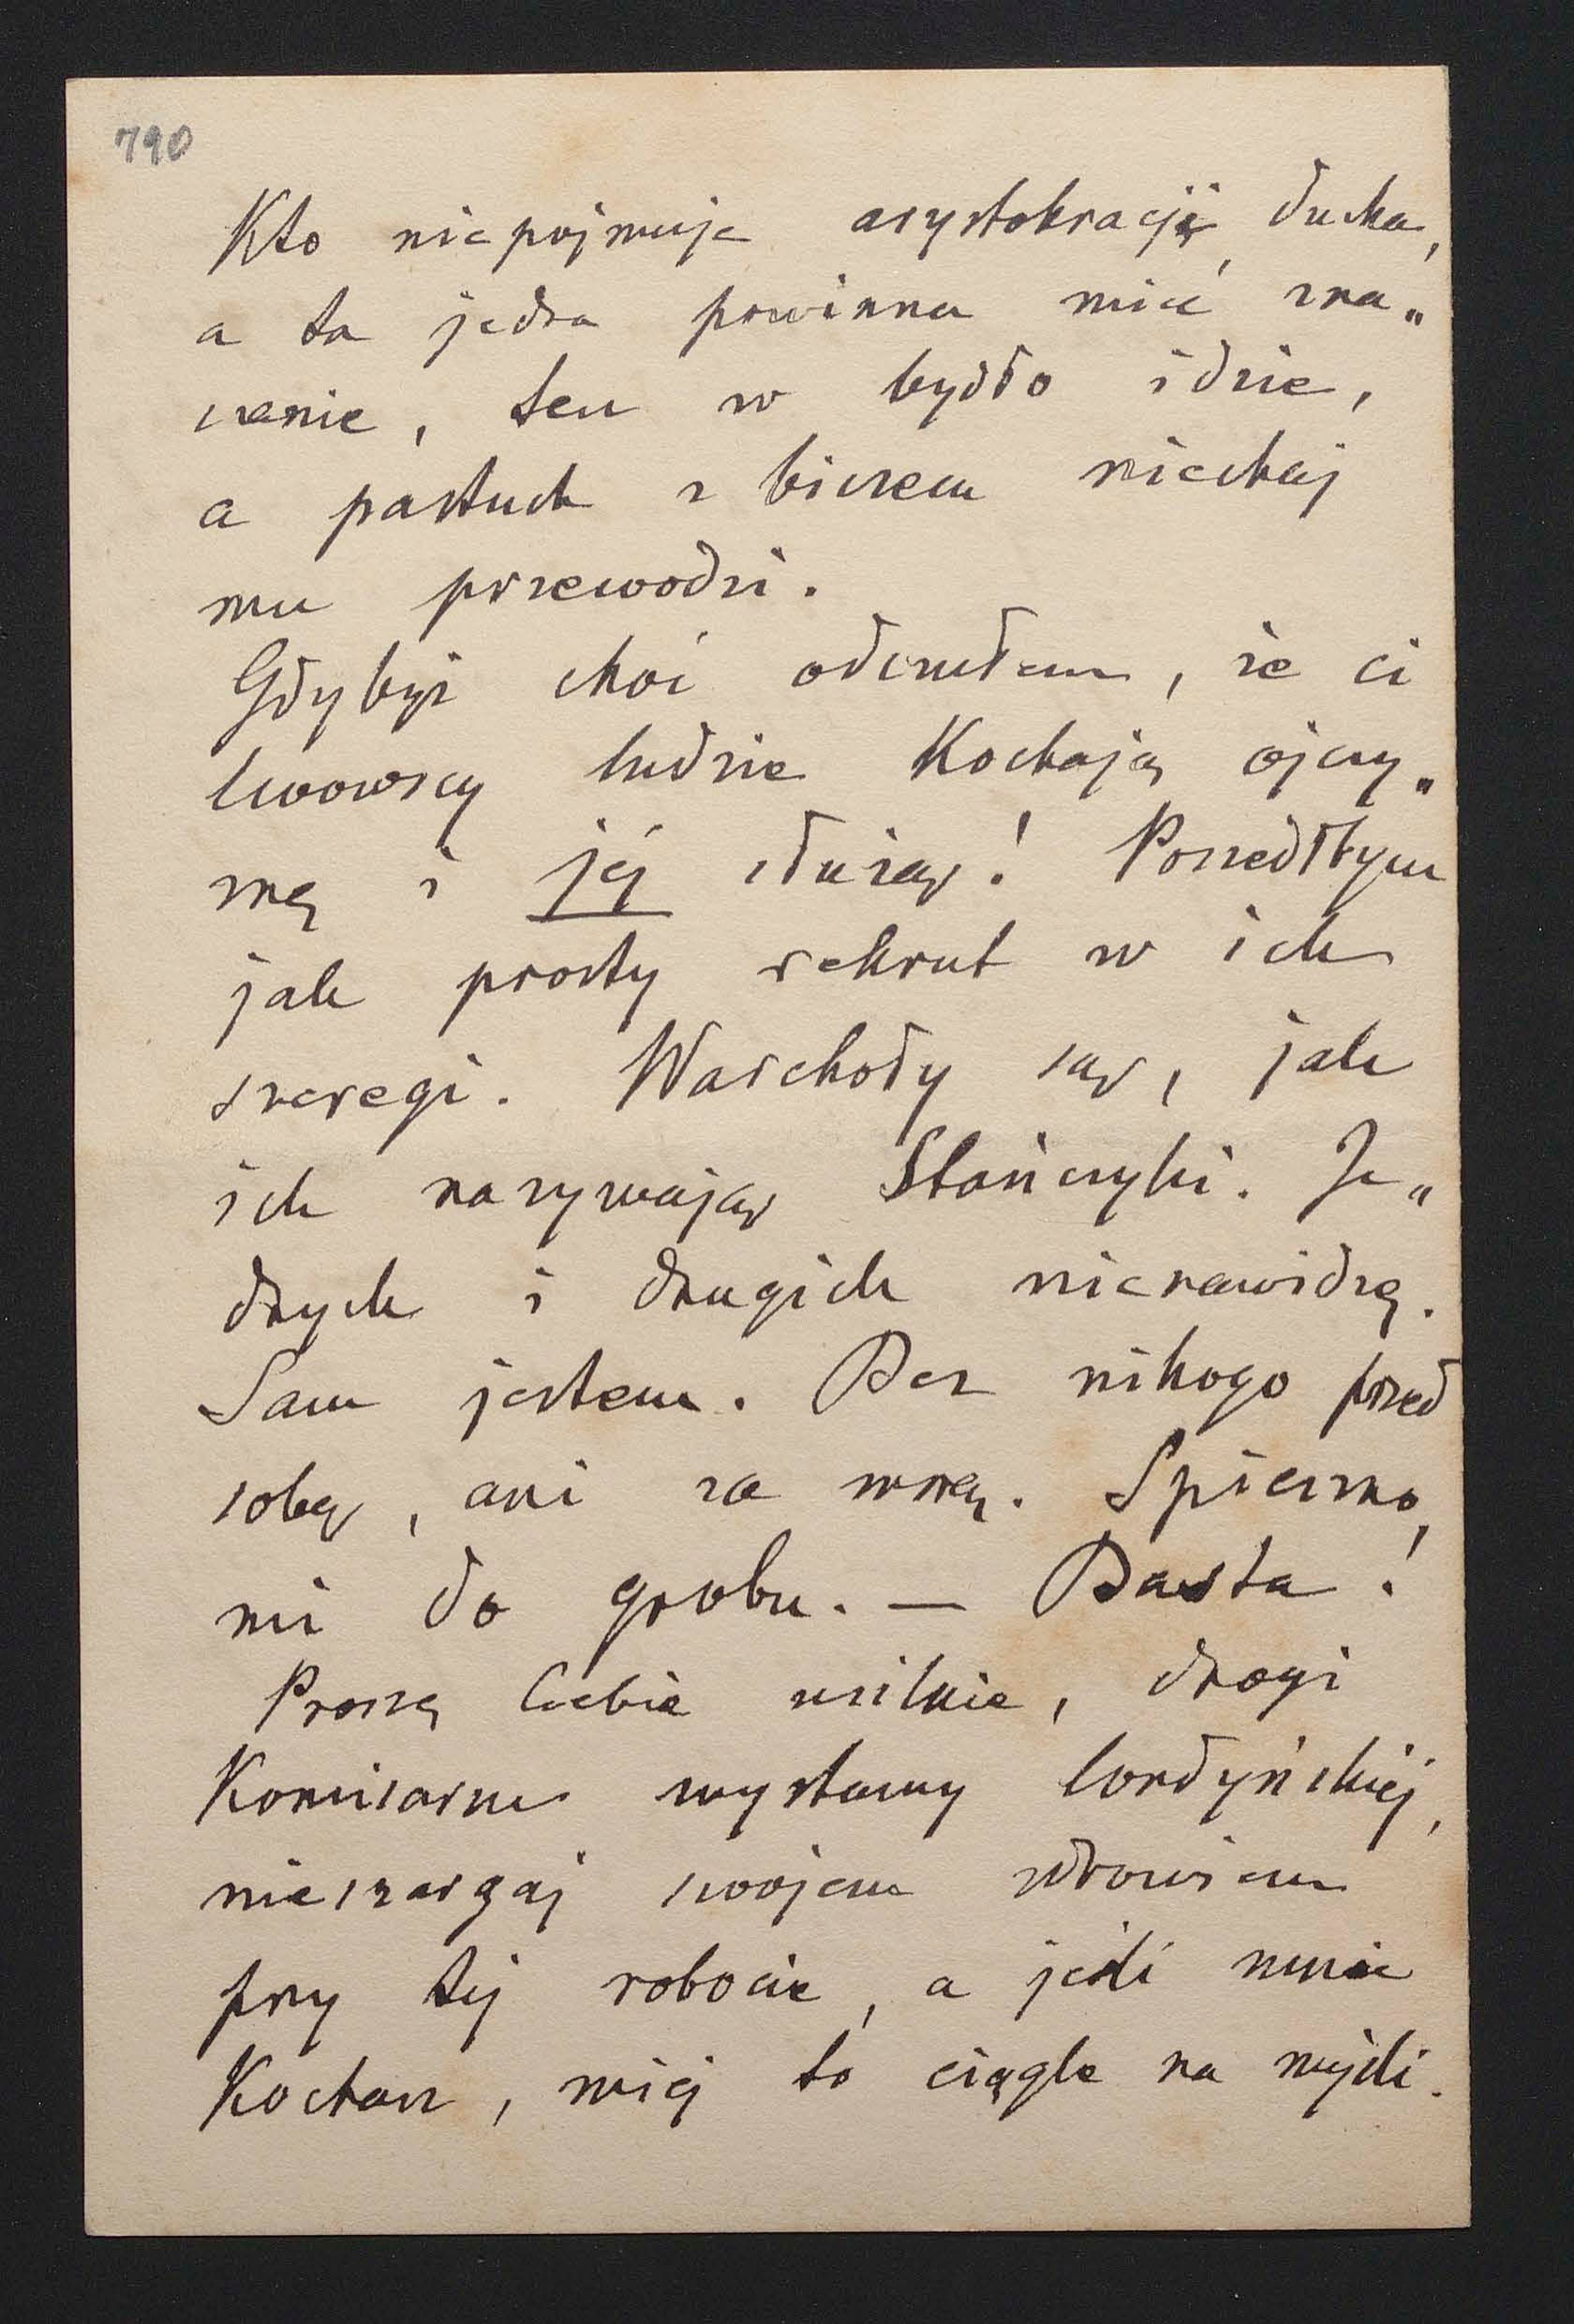 790
Kto niepojmuje arystokracji ducha,
a ta jedna powinna mieć zna„
czenie, ten w bydło idzie,
a pastuch z biczem niechaj
mu przewodzi.
Gdybyż choć odczułem, że ci
lwowscy ludzie kochają ojczy„
znę i jej służą! Poszedłbym
jak prosty rekrut w ich
szeregi. Warchoły są, jak
ich nazywają Stańczyki. Je„
dnych i drugich nienawidzę.
Sam jestem. Bez nikogo przed
sobą, ani za mną. Spieszno
mi do grobu. — Basta!
Proszę Ciebie usilnie, drogi
Komisarzu wystawy londyńskiej,
nieszargaj swojem zdrowiem
przy tej robocie, a jeśli mnie
Kochasz, miej to ciągle na myśli.